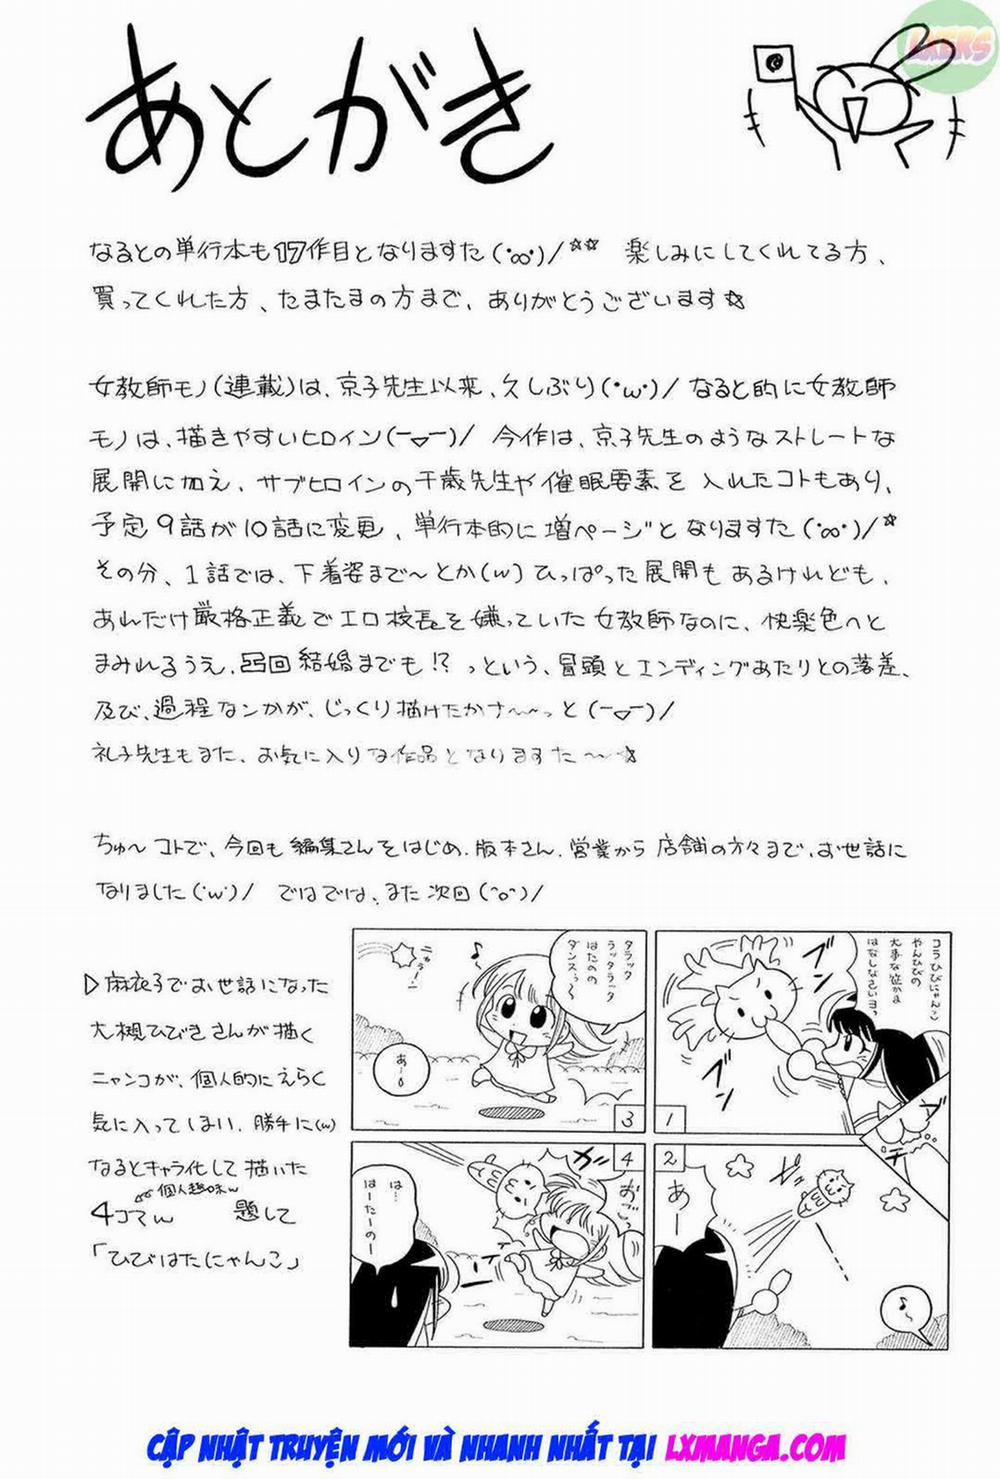 あとがき
LXERS
なるとの単行本も17作目となりますた(・∞・)/☆☆ 楽しみにしてくれてる方、
買ってくれた方、たまたまの方まで、ありがとうございます☆
女教師モノ(連載)は、京子先生以来、久しぶり(・w・)/ なると的に女教師
モノは、描きやすいヒロイン(ー▽ー)/ 今作は、京子先生のようなストレートな
展開に加え、サブヒロインの千歳先生や催眠要素を入れたコトもあり、
予定9話が10話に変更、単行本的に増ページとなりますた(・∞・)/☆
その分、1話では、下着姿まで〜とか(w)ひっぱった展開もあるけれども、
あれだけ厳格正義でエロ校長を嫌っていた女教師なのに、快楽色へと
まみれるうえ、凸凹結婚までも!? っという、冒頭とエンディングあたりとの落差、
及び、過程なンかが、じっくり描けたかナ〜〜っと(ー▽ー)/
礼子先生もまた、お気に入りな作品となりますた〜☆
ちゅ〜コトで、今回も編集さんをはじめ、版本さん、営業から店舗の方々まで、お世話に
なりました(・w・)/ ではでは、また次回(^o^)/
▷麻衣子でお世話になった
大槻ひびきさんが描く
ニャンコが、個人的にえらく
気に入ってしまい、勝手に(w)
なるとキャラ化して描いた
個人趣味w
4コマw 題して
「ひびはたにゃんこ」
コラひびにゃんこ
やんひびの
大事な
はなしなさいヨっ
ブン
ブン
1
2
あー
♪
タラック
ラッタラ〜タ
はたのの
ダンスっ〜
♪
ニャラー!
あー
3
4
ガッ
おごっ
は…
はーたーのー
CẬP NHẬT TRUYỆN MỚI VÀ NHANH NHẤT TẠI LXMANGA.COM